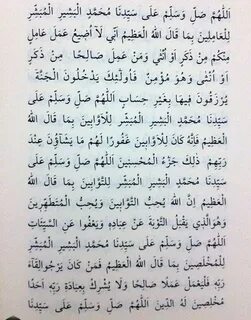 اَللّٰهُمَّ صَلِّ وَسَلِّمْ عَلَى سَيِّدِنَا مُحَمَّدٍ الْبَشِيْرِ الْمُبَشِّرِ
لِلْعَامِلِيْنَ بِمَا قَالَ اللهُ الْعَظِيْمُ اَنِّيْ لَا اُضِيْعُ عَمَلَ عَامِلٍ
مِنْكُمْ مِنْ ذَكَرٍ اَوْ اُنْثٰى وَمَنْ عَمِلَ صَالِحًا مِنْ ذَكَرٍ
اَوْ اُنْثٰى وَهُوَ مُؤْمِنٌ فَاُولٰئِكَ يَدْخُلُوْنَ الْجَنَّةَ
يُرْزَقُوْنَ فِيْهَا بِغَيْرِ حِسَابٍ اَللّٰهُمَّ صَلِّ وَسَلِّمْ عَلَى
سَيِّدِنَا مُحَمَّدٍ الْبَشِيْرِ الْمُبَشِّرِ لِلْاَوَّابِيْنَ بِمَا قَالَ اللهُ
الْعَظِيْمُ فَاِنَّهُ كَانَ لِلْاَوَّابِيْنَ غَفُوْرًا لَهُمْ مَا يَشَآؤُنَ عِنْدَ
رَبِّهِمْ ذٰلِكَ جَزَٓءُ الْمُحْسِنِيْنَ اَللّٰهُمَّ صَلِّ وَسَلِّمْ عَلَى
سَيِّدِنَا مُحَمَّدٍ الْبَشِيْرِ الْمُبَشِّرِ لِلتَّوَّابِيْنَ بِمَا قَالَ اللهُ
الْعَظِيْمُ اِنَّ اللهَ يُحِبُّ التَّوَّابِيْنَ وَيُحِبُّ الْمُتَطَهِّرِيْنَ
وَهُوَ الَّذِيْ يَقْبَلُ التَّوْبَةَ عَنْ عِبَادِهِ وَيَعْفُوا عَنِ السَّيِّئَاتِ
اَللّٰهُمَّ صَلِّ وَسَلِّمْ عَلَى سَيِّدِنَا مُحَمَّدٍ الْبَشِيْرِ الْمُبَشِّرِ
لِلْمُخْلِصِيْنَ بِمَا قَالَ اللهُ الْعَظِيْمُ فَمَنْ كَانَ يَرْجُوا لِقَآءَ
رَبِّهِ فَلْيَعْمَلْ عَمَلًا صَالِحًا وَلَا يُشْرِكْ بِعِبَادَةِ رَبِّهِ اَحَدًا
مُخْلِصِيْنَ لَهُ الدِّيْنَ اَللّٰهُمَّ صَلِّ وَسَلِّمْ عَلَى سَيِّدِنَا